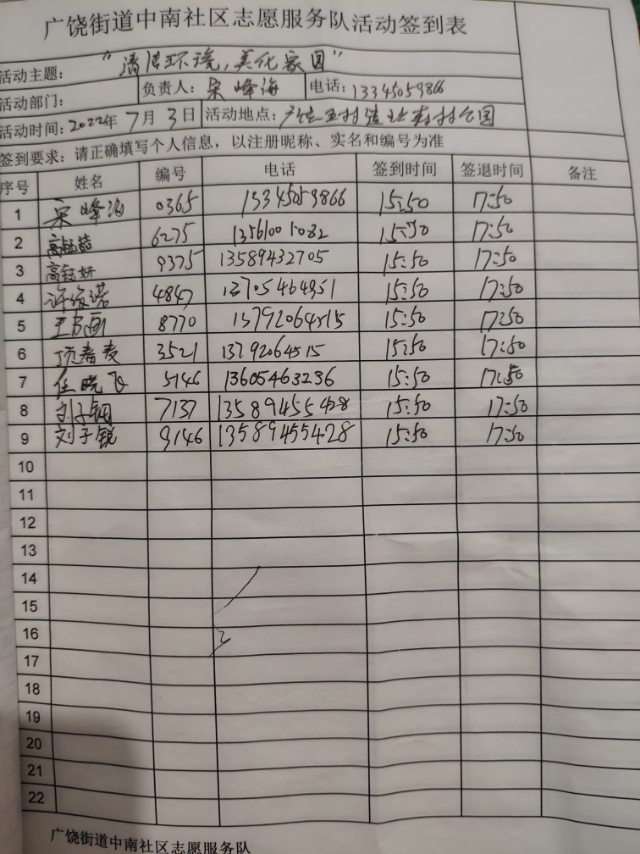 广饶街道中南社区志愿服务队活动签到表
活动主题： “清洁环境，美化家园”
活动部门： 负责人：宋峰海 电话：13345059866
活动时间：2022年7月3日 活动地点：
签到要求：请正确填写个人信息，以注册昵称、实名和编号为准
序号 姓名 编号 电话 签到时间 签退时间 备注
1 宋峰海 0365 13345059866 15:50 17:50
2 6275 15:50 17:50
3 高钰妍 9375 13589432705 15:50 17:50
4 4847 13705464951 15:50 17:50
5 王书画 8770 13792064515 15:50 17:50
6 3521 13792064515 15:50 17:50
7 任晓飞 5146 13605463236 15:50 17:50
8 刘子钥 7137 13589455428 15:50 17:50
9 刘子锐 9146 13589455428 15:50 17:50
10
11
12
13
14
15
16
17
18
19
20
21
22
广饶街道中南社区志愿服务队